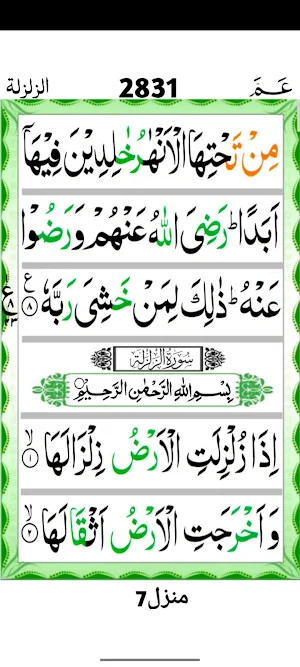 الزلزلة 2831 عَمَّ
مِنْ تَحْتِهَا الْاَنْهٰرُ خٰلِدِيْنَ فِيْهَاۤ
اَبَدًا ؕ رَضِىَ اللّٰهُ عَنْهُمْ وَرَضُوْا
عَنْهُ ؕ ذٰلِكَ لِمَنْ خَشِىَ رَبَّهٗ ۝۸ ع
ع ۸ ۲۳
سُوْرَةُ الزِّلْزَالِ
بِسْمِ اللّٰهِ الرَّحْمٰنِ الرَّحِيْمِ
اِذَا زُلْزِلَتِ الْاَرْضُ زِلْزَالَهَا ۝۱ ۙ
وَ اَخْرَجَتِ الْاَرْضُ اَثْقَالَهَا ۝۲ ۙ
منزل 7